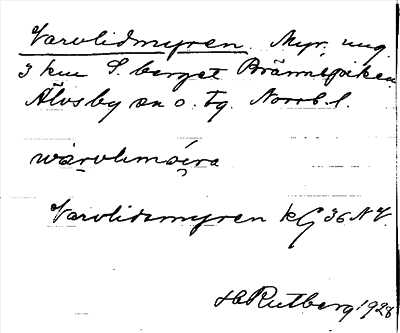 Varvlidmyren. Myr. ung.
3 km S. berget Brännspiken
Älvsby sn o. tg. Norrb. l.
Varvlidsmyren kG 36 N V.
H Rutberg 1928